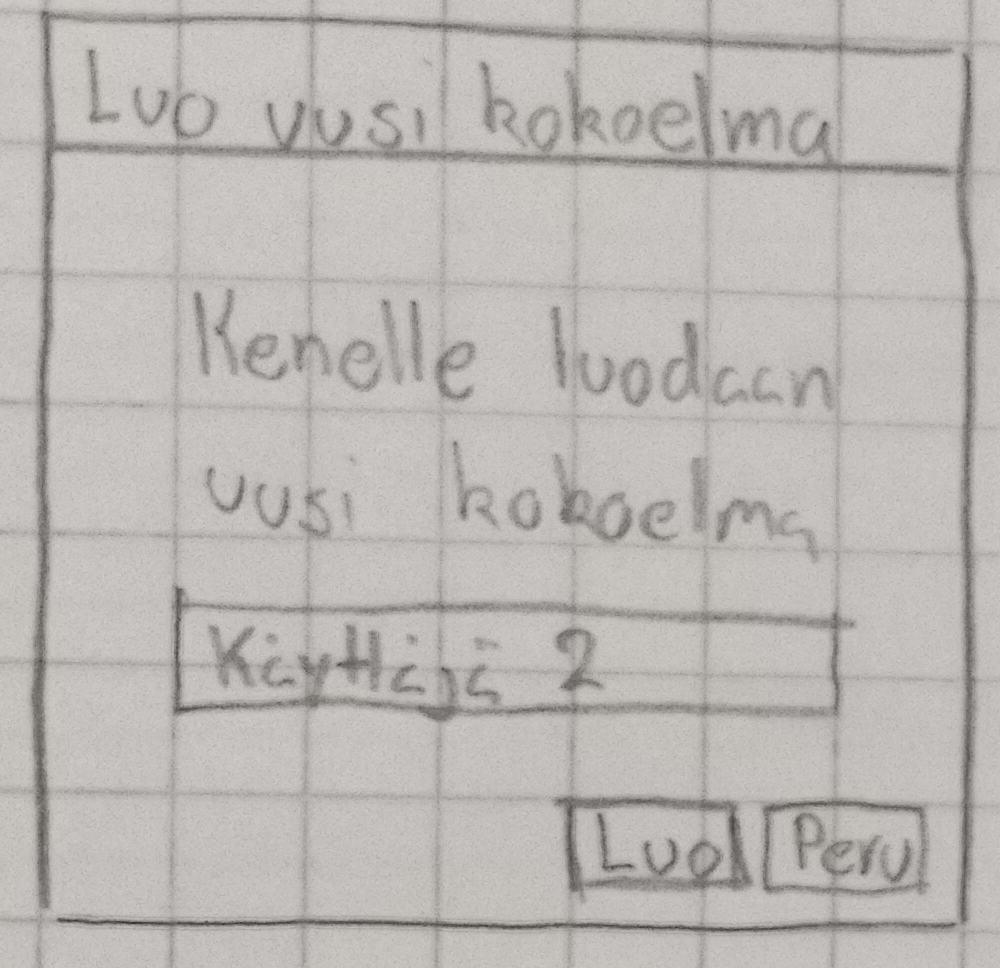 Luo uusi kokoelma
Kenelle luodaan
uusi kokoelma
Käyttäjä 2
Luo Peru